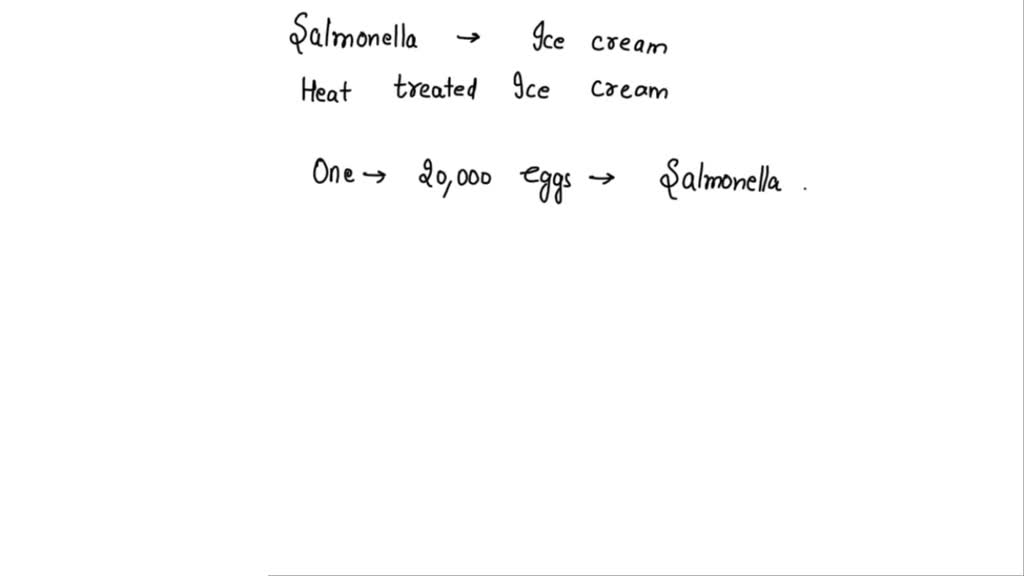 Salmonella → Ice cream
Heat treated Ice cream
One → 20,000 eggs → Salmonella .